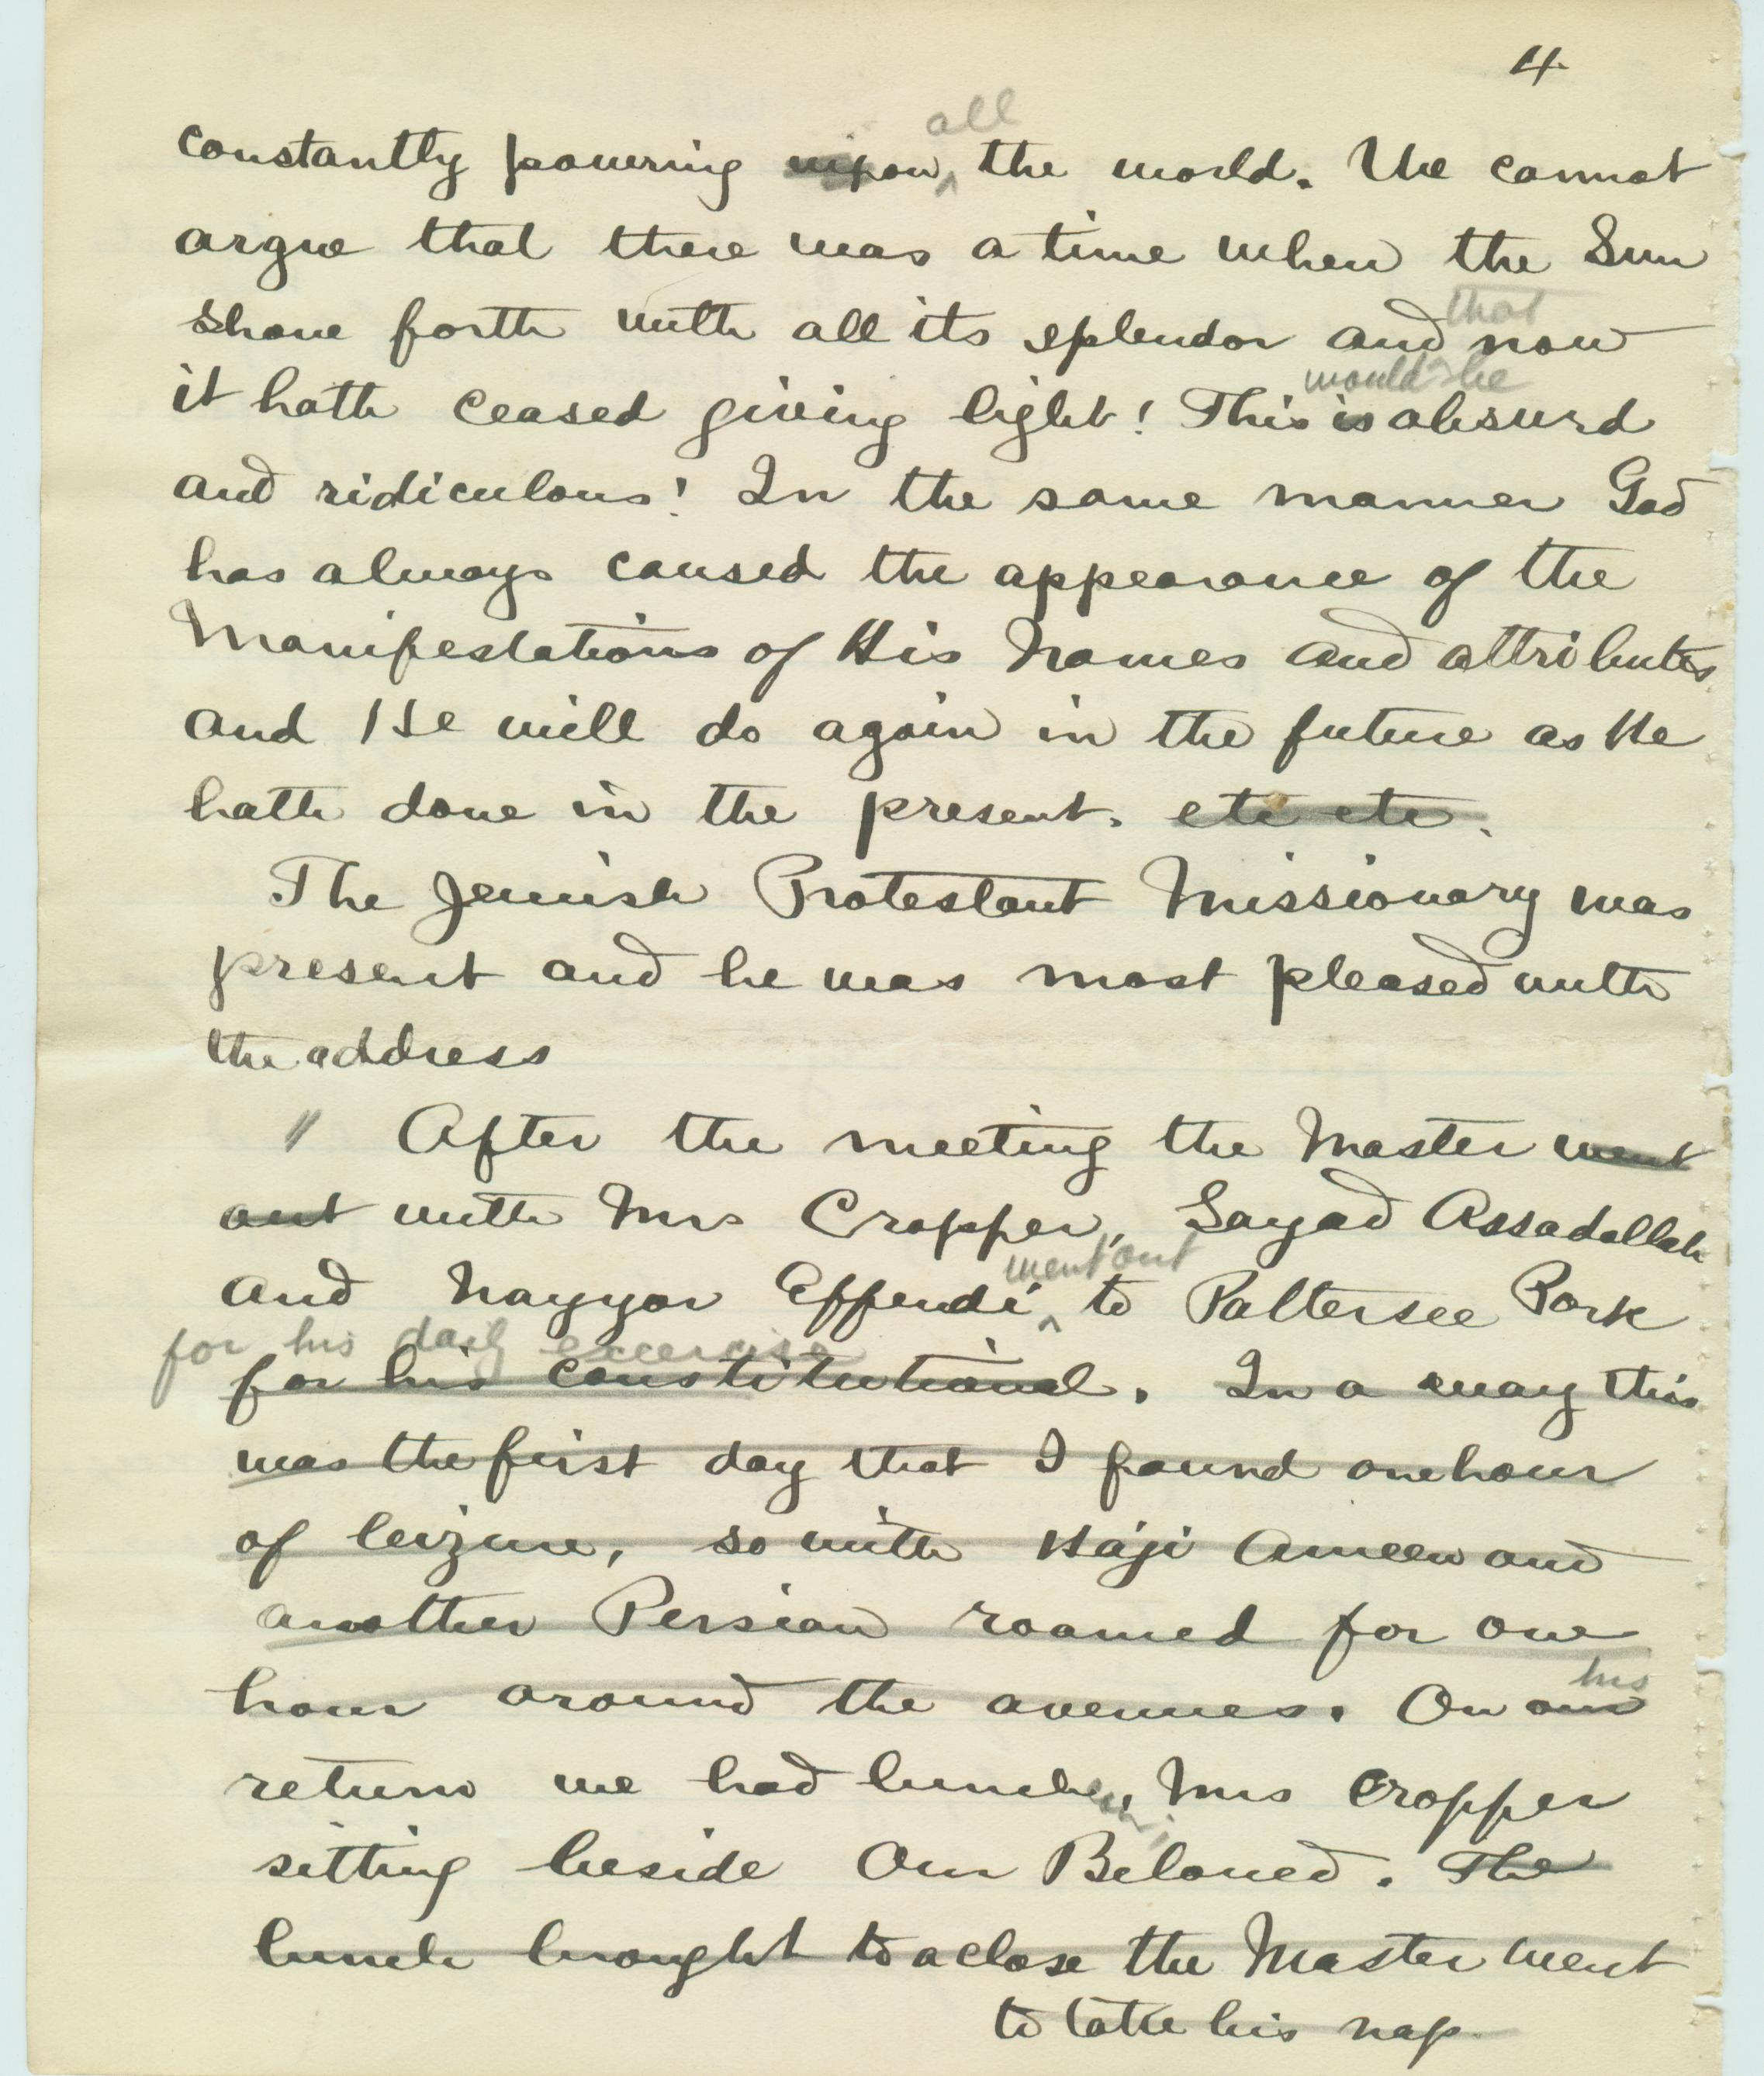 4.
all
constantly pouring upon the world. We cannot
argue that there was a time when the Sun
that
shone forth with all its splendor and now
would be
it hath ceased giving light! This is absurd
and ridiculous! In the same manner God
has always caused the appearance of the
Manifestations of His Names and attributes
and He will do again in the future as He
hath done in the present. etc etc.
The Jewish Protestant Missionary was
present and he was most pleased with
the address
" After the meeting the Master went
out with Mrs Cropper, Sayad Assadallah
went out
and Nayyor Effendi ^ to Paltersee Park
for his daily excercise
for his constitutional. In a way this
was the first day that I found one hour
of leizure, so with Haji Ameen and
another Persian roamed for one
his
hour around the avenues. On our
return we had lunch, Mrs Cropper
sitting beside Our Beloved. The
lunch brought to a close the Master went
to take his nap.